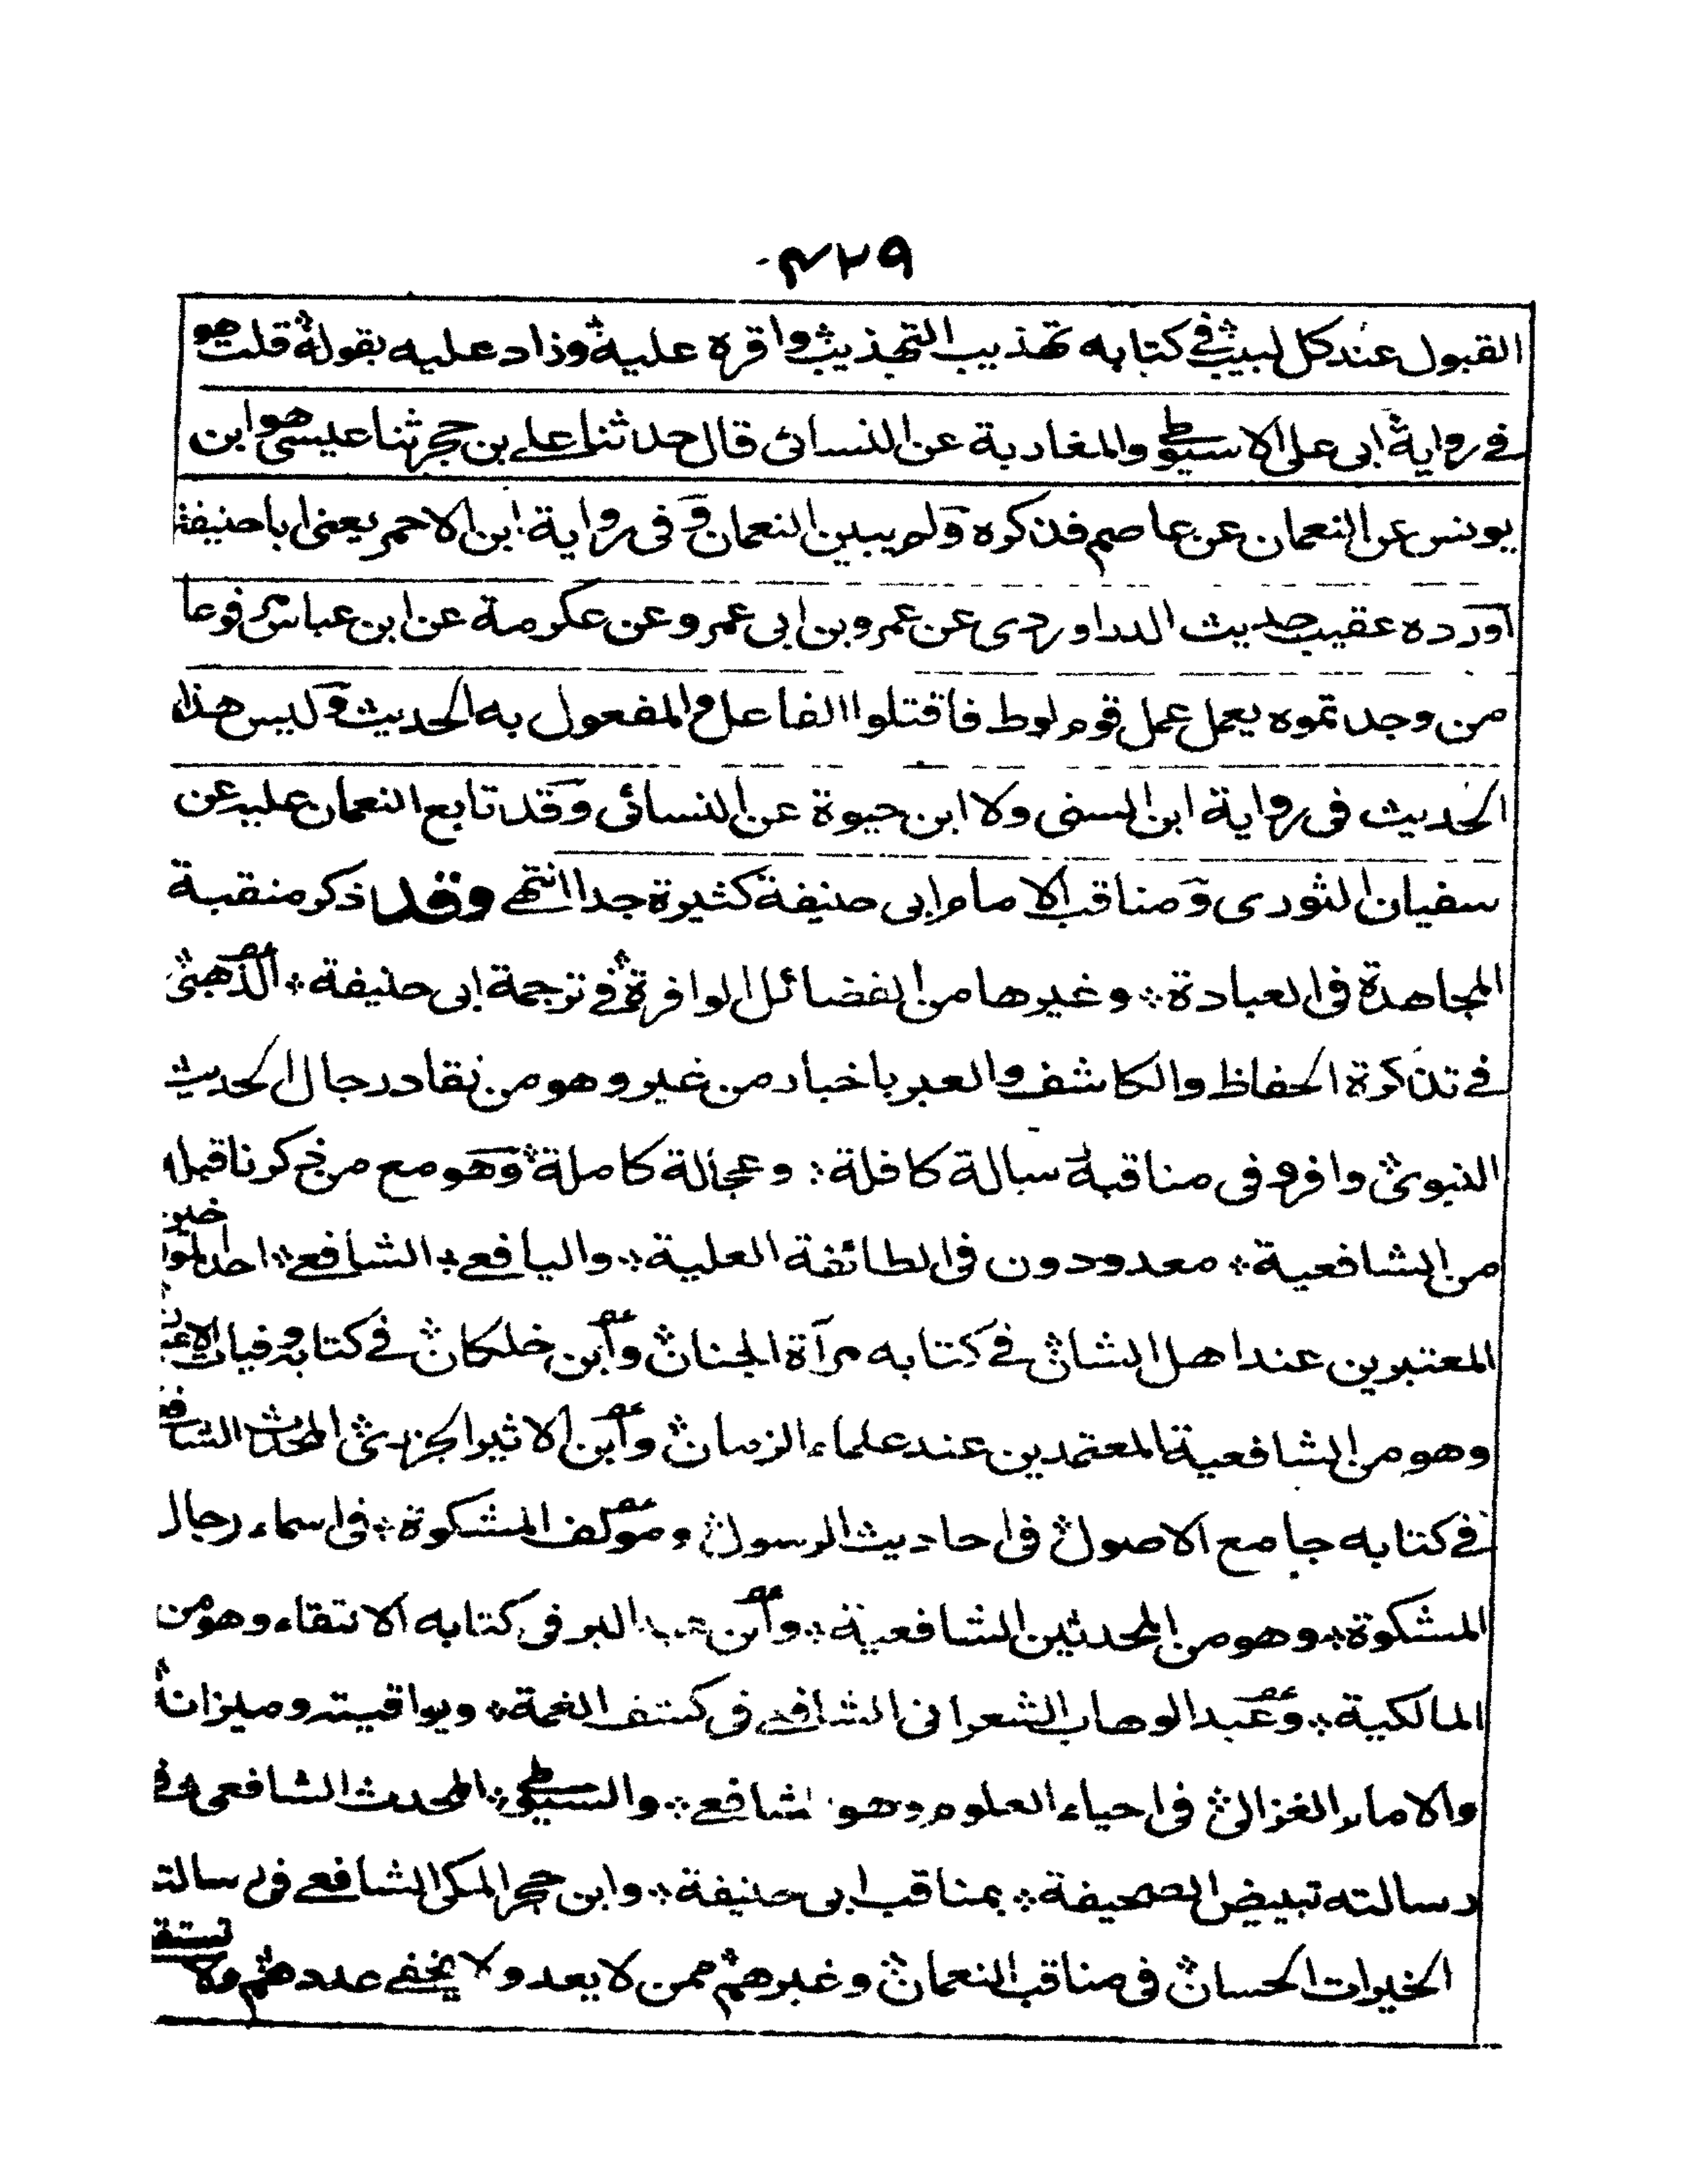 ٤٢٩
القبول عند كل لبيب في كتابه تهذيب التهذيب واقره عليه وزاد عليه بقوله قلت هو
في رواية ابى على الاسيوطي والمغاربة عن النسائى قال حدثنا علي بن حجر ثنا عيسى هو ابن
يونس عن النعمان عن عاصم فذكره ولم يبين النعمان وفى رواية ابن الاحمر يعنى ابا حنيفة
اورده عقيب حديث الدراوردى عن عمرو بن ابى عمرو عن عكرمة عن ابن عباس مرفوعا
من وجدتموه يعمل عمل قوم لوط فاقتلوا الفاعل والمفعول به الحديث وليس هذا
الحديث فى رواية ابن السنى ولا ابن حيوة عن النسائى وقد تابع النعمان عليه عن
سفيان الثورى ومناقب الامام ابى حنيفة كثيرة جدا انتهى وقد ذكر منقبة
المجاهدة فى العبادة وغيرها من الفضائل الوافرة في ترجمة ابى حنيفة الذهبى
في تذكرة الحفاظ والكاشف والعبر باخبار من غبر وهو من نقاد رجال الحديث
النبوى وافرد فى مناقبه سالة كافلة وعجالة كاملة وهو مع من ذكرنا قبله
من الشافعية معدودون فى الطائفة العلية واليافعي الشافعي احد المورخين
المعتبرين عند اهل الشان في كتابه مرآة الجنان وابن خلكان في كتابه وفيات الاعيان
وهو من الشافعية المعتمدين عند علماء الزمان وابن الاثير الجزرى المحدث الشافعي
في كتابه جامع الاصول فى احاديث الرسول ومؤلف المشكوة فى اسماء رجال
المشكوة وهو من المحدثين الشافعية وابن عبد البر فى كتابه الانتقاء وهو من
المالكية وعبد الوهاب الشعرانى الشافعي فى كشف الغمة ويواقيته وميزانه
والامام الغزالى فى احياء العلوم وهو شافعي والسيوطي المحدث الشافعى في
رسالته تبييض الصحيفة بمناقب ابى حنيفة وابن حجر المكى الشافعي فى رسالته
الخيرات الحسان فى مناقب النعمان وغيرهم ممن لا يعد ولا يخفى عددهم ولا